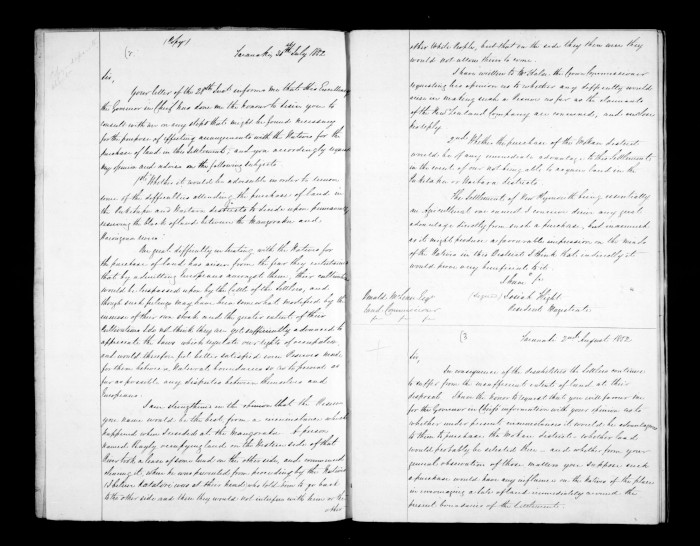 (Copy)
Taranaki, 30th July 1852
Sir,
Your letter of the 28th Inst informs me that His Excellency
the Governor in Chief has done me the honour to desire you to
consult with me on any steps that might be found necessary
for the purpose of effecting arrangements with the Natives for the
purchase of land in this Settlement, and you accordingly request
my opinion and advice on the following subjects
1st Whether it would be advisable in order to remove
some of the difficulties attending the purchase of land in
the and districts to decide upon permanently
reserving the block of land between the Mangoraka and
river
One great difficulty in treating with the Natives for
the purchase of land has arisen from the fear they entertained
that by admitting Europeans amongst them, their cultivations
would be trespassed upon by the Cattle of the Settlers, and
though such feelings may have been somewhat modified by the
increase of their own stock and the greater extent of their
cultivations I do not think they are yet sufficiently advanced to
appreciate the laws which regulate our rights of occupation,
and would therefore feel better satisfied were Reserves made
for them between Natural boundaries so as to prevent as
far as possible any disputes between themselves and
Europeans.
I am strengthened in the opinion that the Reserve
you name would be the best from a circumstance which
happened when I resided at the Mangoraka. A person
named Bayly occupying land on the Western side of that
River took a lease of some land on the other side, and commenced
clearing it, when he was prevented from proceeding by the Natives
Katatore was at their head who told him to go back
to the other side and then they would not interfere with him or the
other
other White People, but that on the side they then were they
would not allow them to come.
I have written to Mr Halse, the Crown Commissioner
requesting his opinion as to whether any difficulty would
arise in making such a Reserve as far as the claimants
of the New Zealand Company are concerned, and enclose
his reply.
2nd Whether the purchase of the Mokau district
would be of any immediate advantage to this Settlement
in the event of our not being able to acquire land in the
or districts
The Settlement of New Plymouth being essentially
an Agricultural one cannot I conceive derive any great
advantage directly from such a purchase, but inasmuch
as it might produce a favorable impression on the minds
of the Natives in this District I think that indirectly it
would prove very beneficial to it.
I have &c
(Signed) Josiah Flight
Resident Magistrate
Donald McLean Esqr
Land Commissioner
Taranaki 2nd August 1852
Sir,
In consequence of the the Settlers continue
to suffer from the insufficient extent of land at their
disposal I have the honor to request that you will favour me
for the Governor in Chief's information with your opinion as to
whether under present circumstances it would be advantageous
to them to purchase the Mokau district – whether land
would probably be selected there – and whether from your
general observation of these matters you suppose such
a purchase would have any influence on the Natives of the place
in encouraging a sale of land immediately around the
present boundaries of the Settlement.